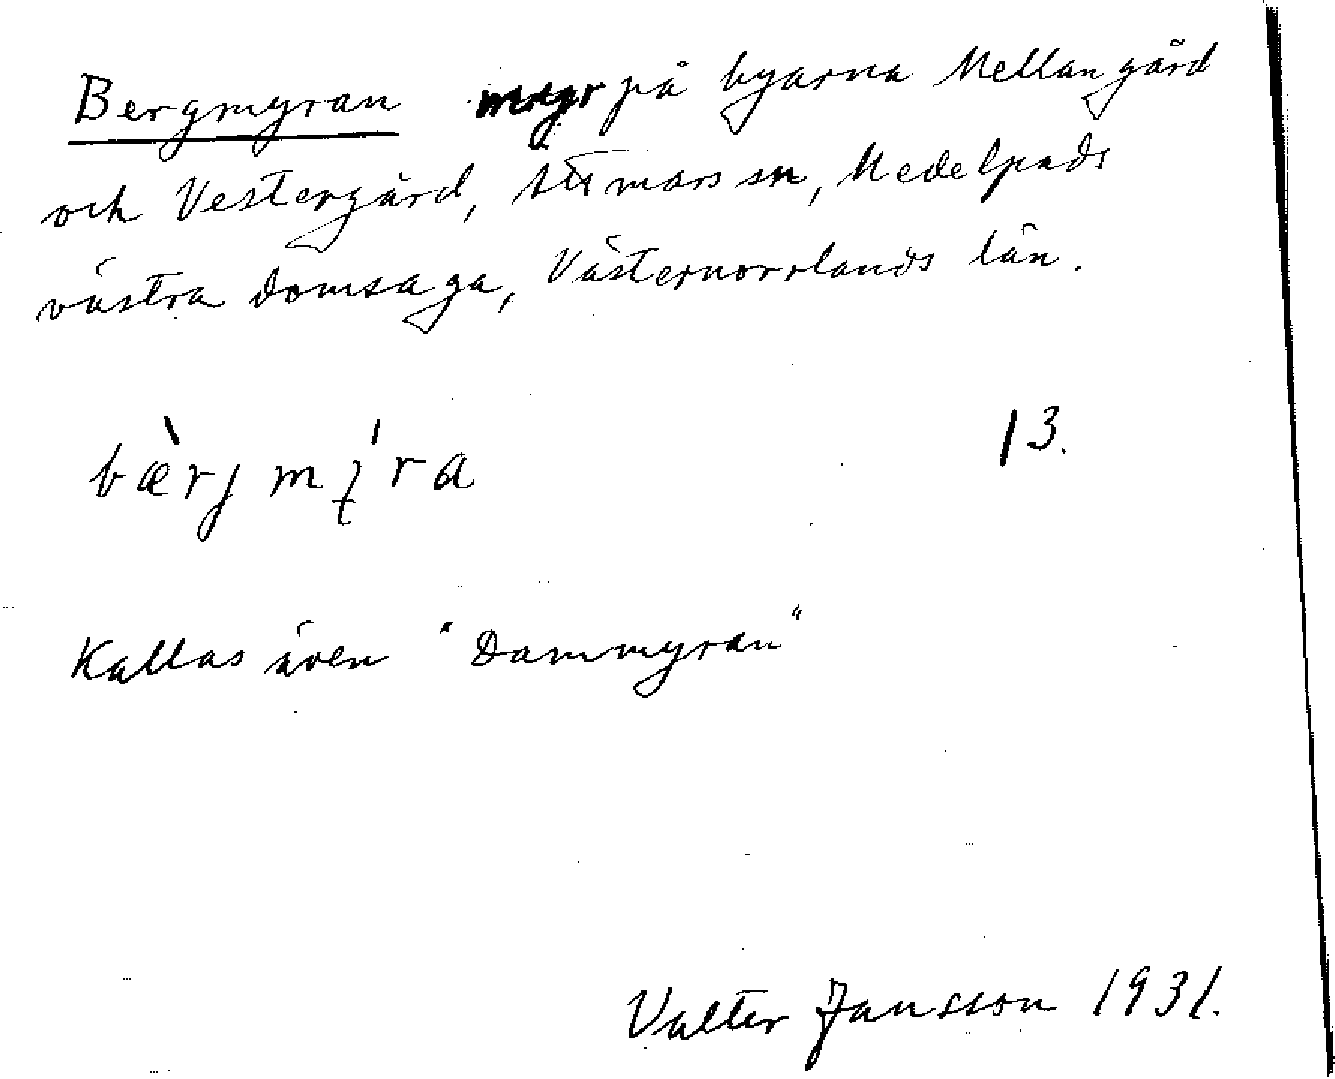 Bergmyran myr på byarna Mellangård
och Vestergård, Attmars sn, Medelpads
västra domsaga, Västernorrlands län.
bæ̀rj mýra 13.
Kallas även "Dammyran"
Valter Jansson 1931.